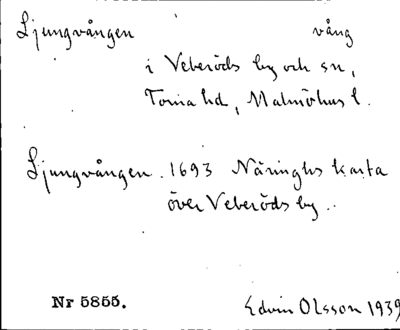 Ljungvången vång
i Veberöds by och sn,
Torna hd, Malmöhus l.
Ljungvången. 1693 Näringhs karta
över Veberöds by..
Nr 5855. Edvin Olsson 1939